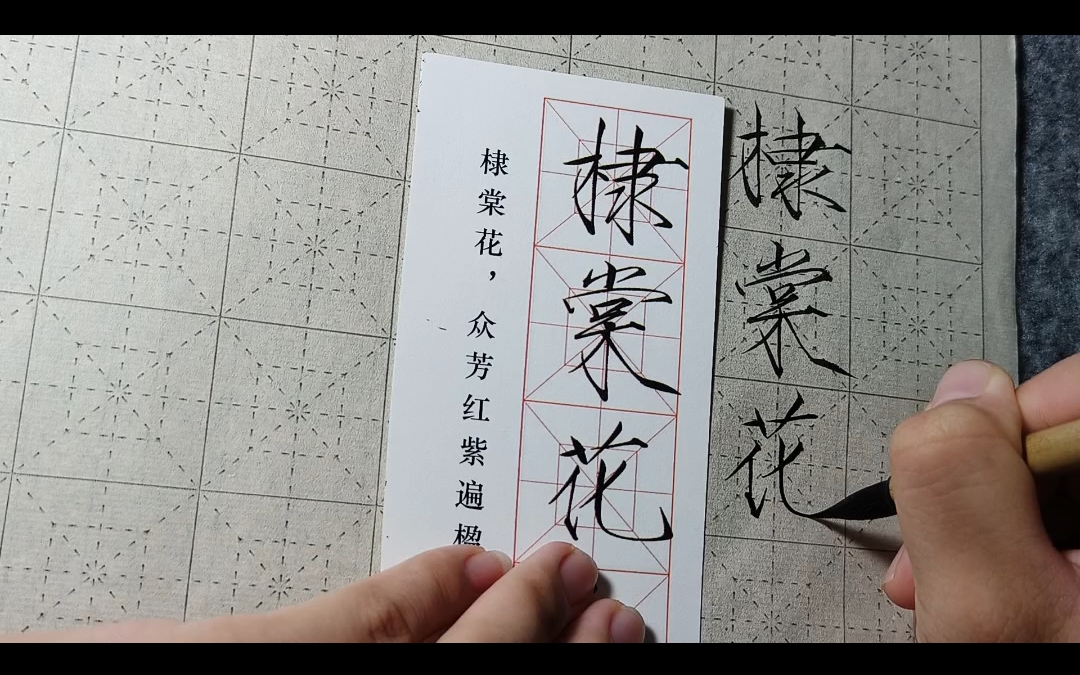 棣棠花
棣棠花
棣棠花，众芳红紫遍